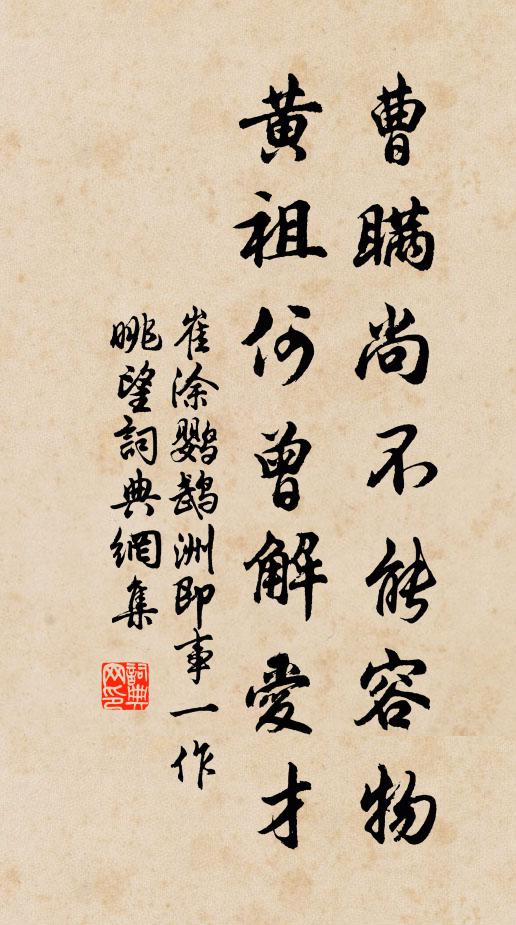 曹瞞尚不能容物
黄祖何曾解愛才
崔涂鸚鵡洲即事一作
眺望詞典網集
詞典
网印